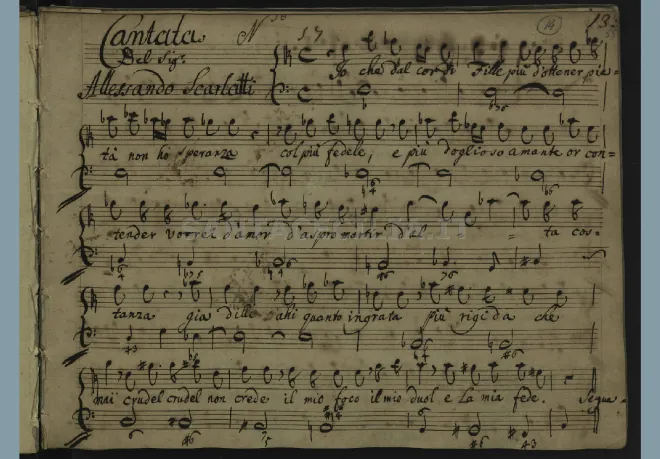 Cantata N 17 14 13
Del Sigr.
Allessandro Scarlatti
Io che dal cor di Fille più d'ottener pie=
tà non ho speranza col più fedele, e più doglioso amante or con=
tender vorrei d'amor d'aspro martir d'al = ta cos=
tanza già dille ahi quanto ingrata più rigida che
mai crudel crudel non crede il mio foco il mio duol e la mia fede. Segue